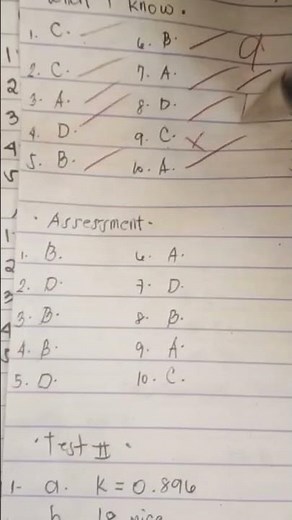 What I know.
1. C.
2. C.
3. A.
4. D.
5. B.
6. B.
7. A.
8. D.
9. C.
10. A.
9
1
2
3
4
5
· Assessment ·
1. B.
2. D.
3. B.
4. B.
5. D.
6. A.
7. D.
8. B.
9. A.
10. C.
1
2
3
4
5
· Test II ·
1- a. K = 0.896
b.